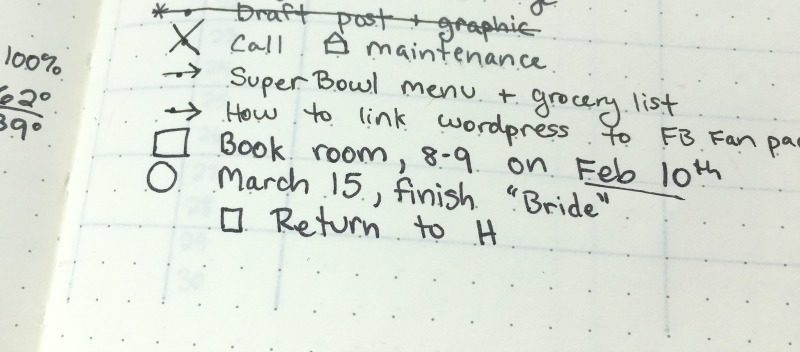 * • Draft post + graphic
X Call maintenance
→ Super Bowl menu + grocery list
→ How to link wordpress to FB Fan
Book room, 8-9 on Feb 10th
March 15, finish "Bride"
Return to H
100%
62°
39°